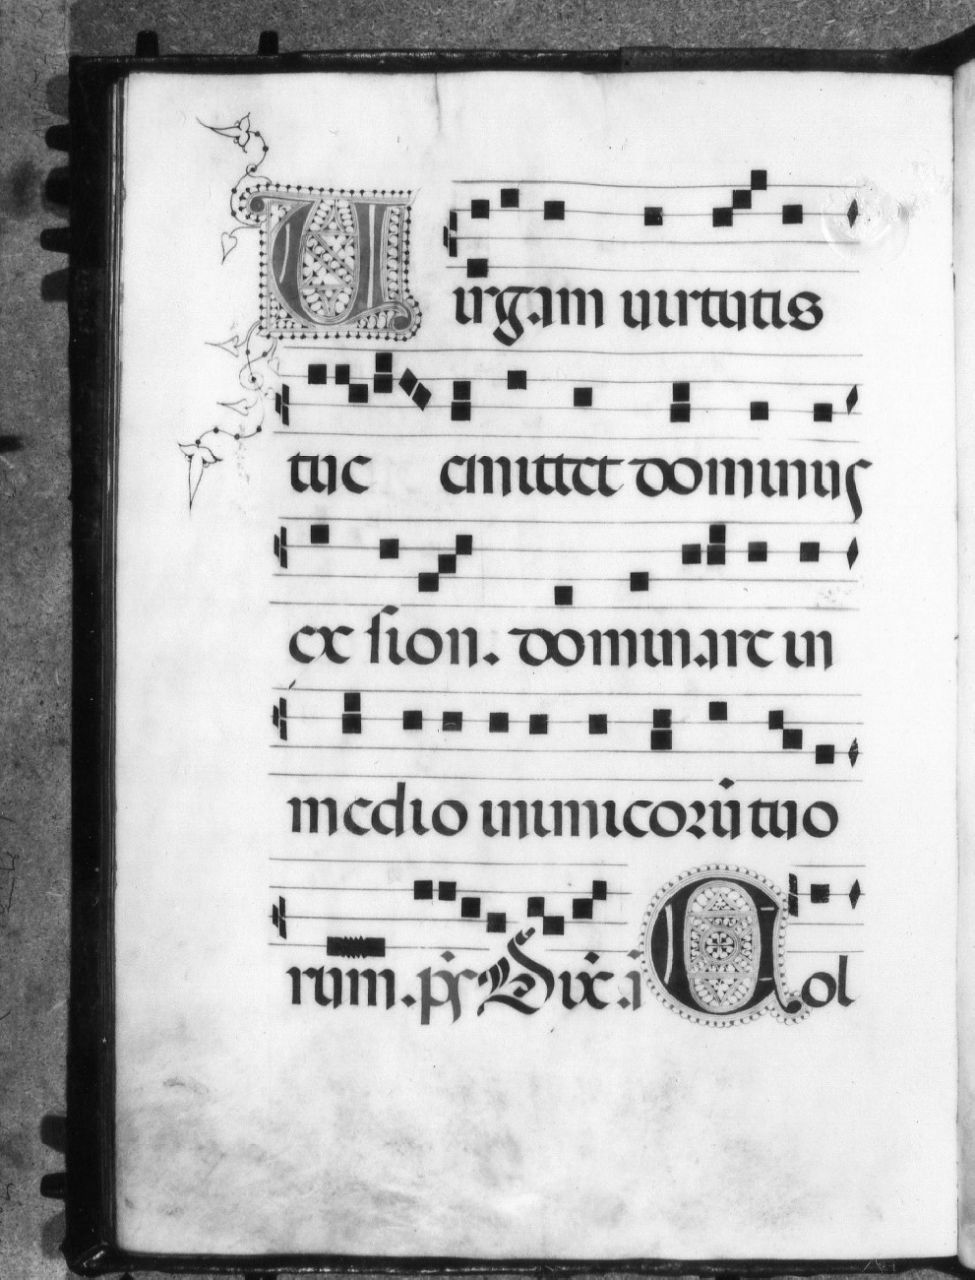 Uirgam uirtutis
tue emittet dominus
ex sion. dominare in
medio inimicorū tuo
rum. p̄s Dix̄. ā Col